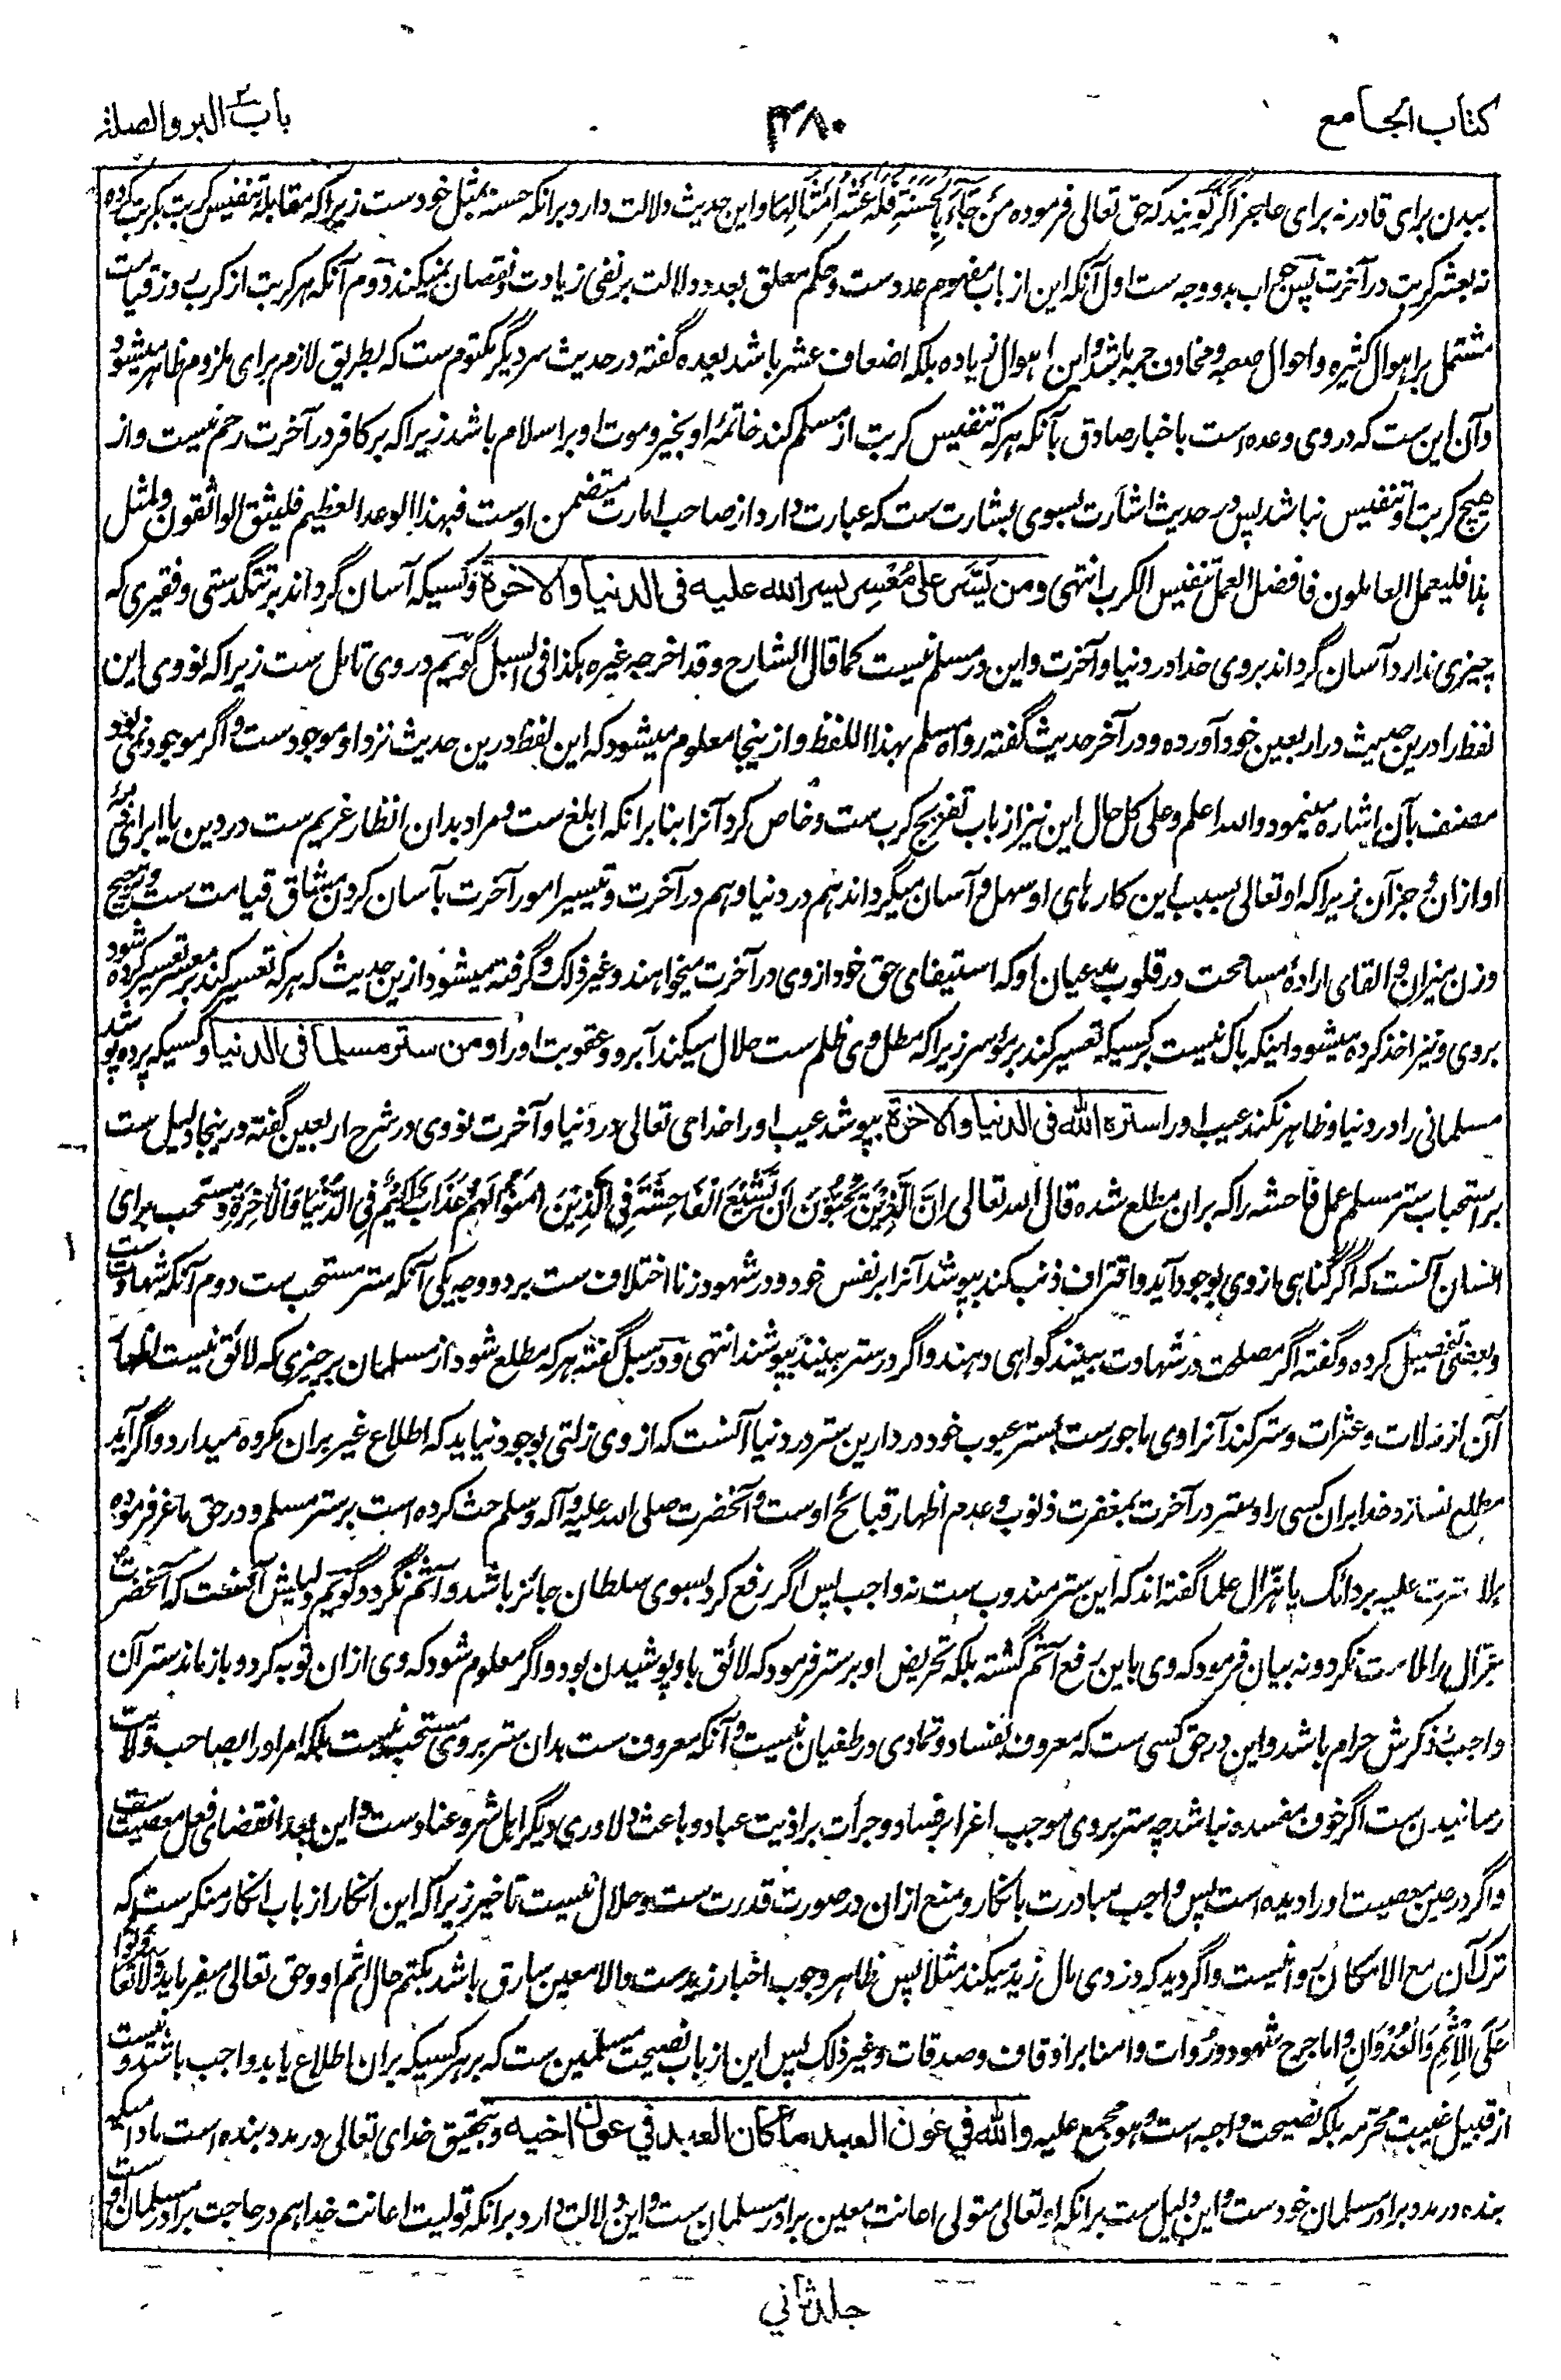 کتاب الجامع
۳۸۰
باب البر والصلة
ببدن برای قادر نه برای عاجز اگر گویند که حق تعالی فرموده مَنْ جَاءَ بِالْحَسَنَةِ فَلَهُ عَشْرُ أَمْثَالِهَا و این حدیث دلالت دارد برانکه حسنه بمثل خودست زیراکه مقابله تنفیس کربت بکربت کرده
نه بعشر کربت در آخرت پس جواب بدو وجه ست اول آنکه این از باب مفهوم عددست و حکم معلق بعدد دلالت بر نفی زیادت و نقصان نمیکند دوم آنکه هر کربت از کرب روز قیامت
مشتمل بر اهوال کثیره و احوال صعبه و مخاوف جمه باشد و این اهوال زیاده بلکه اضعاف عشر باشد بعده گفته در حدیث سر دیگر مکتوم ست که بطریق لازم برای ملزوم ظاهر میشود
و آن این ست که در وی وعده است باخبار صادق بآنکه هر که تنفیس کربت از مسلم کند خاتمهٔ او بخیر و موت او بر اسلام باشد زیراکه بر کافر در آخرت رحم نیست و از
هیچ کربت او تنفیس نباشد پس در حدیث اشارت بسوی بشارت ست که عبارت دارد از صاحب امارت متضمن اوست فبهذا الوعد العظیم فلیثق الواثقون ولمثل
هذا فلیعمل العاملون فافضل العمل تنفیس الکرب انتهی ومن يَسَّرَ علی مُعْسِرٍ يسر الله عليه فی الدنيا والاخرة و کسیکه آسان گرداند بر تنگدستی و فقیری که
چیزی ندارد آسان گرداند بروی خدا در دنیا و آخرت و این در مسلم نیست کما قال الشارح وقد اخرجه غیره هکذا فی السبل گویم در وی تامل ست زیراکه نووی این
لفظ را درین حدیث در اربعین خود آورده و در آخر حدیث گفته رواه مسلم بهذا اللفظ و ازینجا معلوم میشود که این لفظ درین حدیث نزد او موجودست و اگر موجود نمی بود
مصنف بآن اشاره مینمود والله اعلم وعلی کل حال این نیز از باب تفریج کرب ست و خاص کرد آنرا بنا برانکه ابلغ ست و مراد بدان انظار غریم ست در دین یا ابرای ذمهٔ
او ازان و جز آن زیراکه او تعالی بسبب این کارهای او سهل و آسان میگرداند هم در دنیا و هم در آخرت و تیسیر امور آخرت بآسان کردن مشاق قیامت ست و ترجیح
وزن میزان و القای ارادهٔ مسامحت در قلوب مدعیان او که استیفای حق خود از وی در آخرت میخواهند و غیر ذلک و گرفته میشود ازین حدیث که هر که تعسیر کند بر معسر تعسیر کرده شود
بروی و نیز اخذ کرده میشود اینکه باک نیست بر کسیکه تعسیر کند بر موسر زیراکه مطل وی ظلم ست حلال میکند آبرو و عقوبت او را ومن ستر مسلما فی الدنيا و کسیکه پرده پوشد
مسلمانی را در دنیا و ظاهر نکند عیب او را ستره الله فی الدنيا والاخرة بپوشد عیب او را خدای تعالی در دنیا و آخرت نووی در شرح اربعین گفته درینجا دلیل ست
بر استحباب ستر مسلم عمل فاحشه را که بران مطلع شده قال الله تعالی إِنَّ الَّذِينَ يُحِبُّونَ أَنْ تَشِيعَ الْفَاحِشَةُ فِي الَّذِينَ آمَنُوا لَهُمْ عَذَابٌ أَلِيمٌ فِي الدُّنْيَا وَالْآخِرَةِ و مستحب برای
انسان آنست که اگر گناهی از وی بوجود آید و اقتراف ذنب کند بپوشد آنرا بر نفس خود و در شهود زنا اختلاف ست بر دو وجه یکی آنکه ستر مستحب ست دوم آنکه شهادت ست
و بعضی تفصیل کرده و گفته اگر مصلحت در شهادت ببیند گواهی دهند و اگر در ستر ببینند بپوشند انتهی و در سبل گفته هر که مطلع شود از مسلمان بر چیزی که لائق نیست اظهار
آن از زلات و عثرات و ستر کند آنرا وی ماجورست بستر عیوب خود در دارین ستر در دنیا آنست که از وی زلتی بوجود نیاید که اطلاع غیر بران مکروه میدارد و اگر آید
مطلع نسازد خدا بران کسی را و ستر در آخرت بمغفرت ذنوب و عدم اظهار قبائح اوست و آنحضرت صلی الله علیه وآله وسلم حث کرده است بر ستر مسلم و در حق ماعز فرموده
الا سترت علیه بردائک یا هزال علما گفته اند که این ستر مندوب ست نه واجب پس اگر رفع کرد بسوی سلطان جائز باشد و آثم نگردد گویم دلیلش آنست که آنحضرت
هزال را ملامت نکرد و نه بیان فرمود که وی باین رفع آثم گشته بلکه تحریض او بر ستر فرمود که لائق باو پوشیدن بود و اگر معلوم شود که وی ازان توبه کرد و باز ماند ستر آن
واجب و ذکرش حرام باشد و این در حق کسی ست که معروف بفساد و تمادی در طغیان نیست و آنکه معروف ست بدان ستر بروی مستحب نیست بلکه امر او را بصاحب ولایت
رسانیدن ست اگر خوف مفسده نباشد چه ستر بروی موجب اغرا بر فساد و جرأت بر اذیت عباد و باعث دلاوری دیگر اهل شر و عنادست و این بعد انقضای فعل معصیت ست
و اگر در حین معصیت او را دیده است پس واجب مبادرت بانکار و منع ازان در صورت قدرت ست و حلال نیست تاخیر زیراکه این انکار از باب انکار منکرست که
ترک آن مع الامکان روا نیست و اگر دید که دزدی مال زید میکند مثلا پس ظاهر وجوب اخبار زیدست والا معین سارق باشد بکتم حال اثم او و حق تعالی میفرماید وَلَا تَعَاوَنُوا
عَلَى الْإِثْمِ وَالْعُدْوَانِ و اما جرح شهود و رُوات و امنا بر اوقاف و صدقات و غیر ذلک پس این از باب نصیحت مسلمین ست که بر هر کسیکه بران اطلاع یابد واجب باشد و نیست
از قبیل غیبت محرمه بلکه نصیحت واجبه است و هو مجمع علیه والله فی عون العبد ما کان العبد فی عون اخيه و بتحقیق خدای تعالی در مدد بنده است مادامیکه
بنده در مدد برادر مسلمان خودست و این دلیل ست برانکه او تعالی متولی اعانت معین برادر مسلمان ست و این دلالت دارد برانکه تولیت اعانت خدا هم در حاجت برادر مسلمان ست و
جلد ثانی